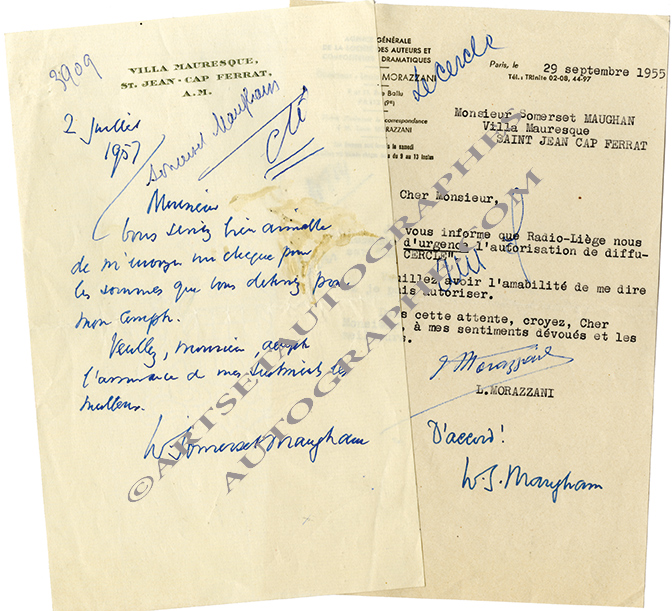 3909
VILLA MAURESQUE,
ST. JEAN-CAP FERRAT,
A.M.
2 Juillet
1957
Somerset Maugham
Monsieur
Vous seriez bien aimable
de m'envoyer un cheque pour
les sommes que vous detenez pour
mon compte.
Veuillez, monsieur, accepter
l'assurance de mes sentiments les
meilleurs.
W. Somerset Maugham
GÉNÉRALE
DES AUTEURS ET
DRAMATIQUES
MORAZZANI
Ballu
(9e)
correspondance
MORAZZANI
le samedi
de 9 à 13 heures
Le Cercle
Paris, le 29 septembre 1955
Tél.: TRInité 02-08, 44-97
Monsieur Somerset MAUGHAN
Villa Mauresque
SAINT JEAN CAP FERRAT
Cher Monsieur,
vous informe que Radio-Liège nous
d'urgence l'autorisation de diffu-
CERCLE".
uillez avoir l'amabilité de me dire
is autoriser.
s cette attente, croyez, Cher
, à mes sentiments dévoués et les
s.
Morazzani
L.MORAZZANI
D'accord!
W. S. Maugham
©ARTSETAUTOGRAPHES
AUTOGRAPHES.COM